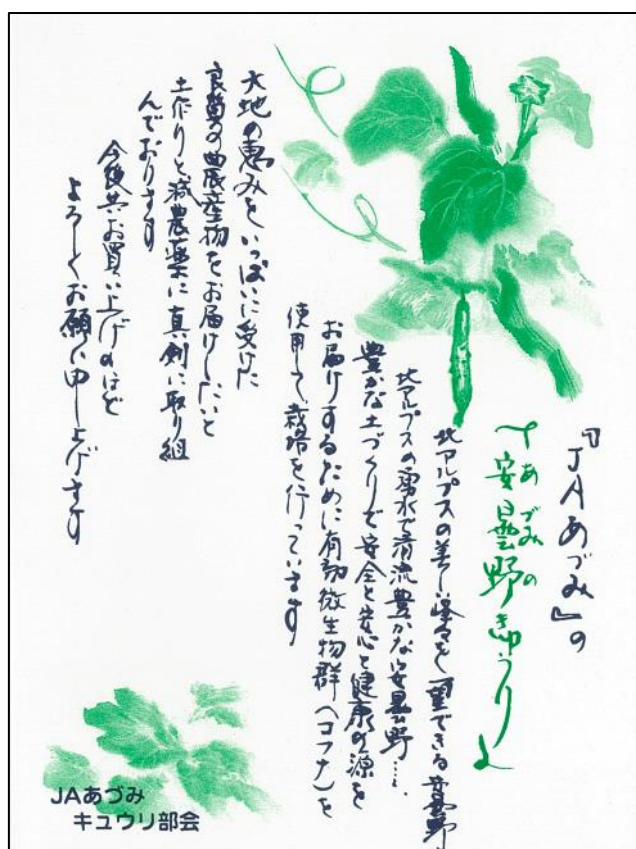 『JAあづみ』の
～安曇野きゅうり～
あづみの
北アルプスの美しい峰々を一望できる安曇野
北アルプスの湧水で清流豊かな安曇野….
豊かな土づくりで安全と安心と健康の源を
お届けするために有効微生物群（コフナ）を
使用して、栽培を行っています
大地の恵みをいっぱいに受けた
良質の農産物をお届けしたいと
土作りと減農薬に真剣に取り組
んでおります
今後共お買い上げのほど
よろしくお願い申し上げます
JAあづみ
キュウリ部会